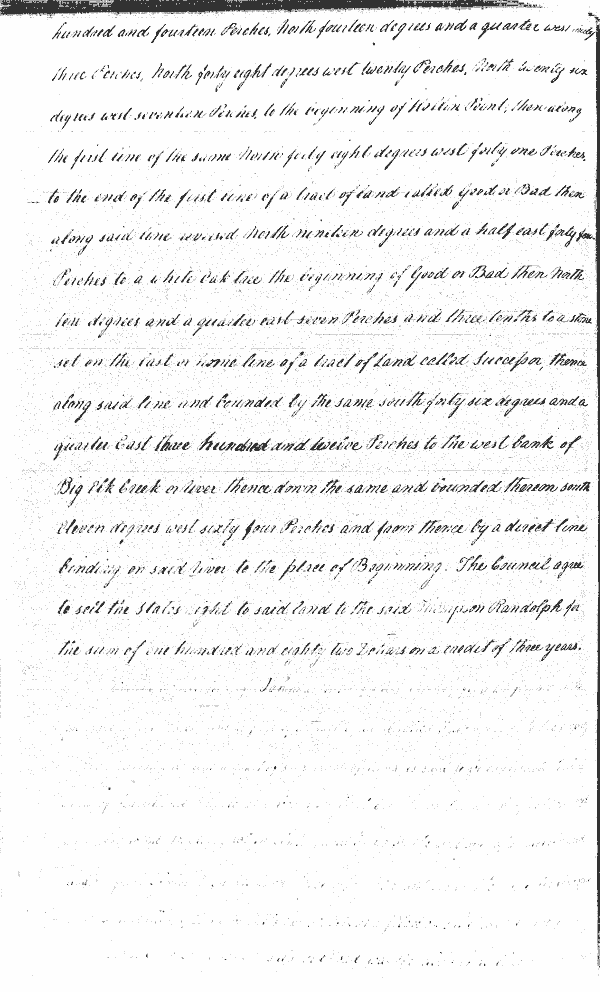 hundred and fourteen Perches, North fourteen degrees and a quarter west
three Perches, North forty eight degrees west twenty Perches, North twenty six
degrees west seventeen Perches, to the beginning of Point, then along
the first line of the same North forty eight degrees west forty one Perches,
to the end of the first line of a tract of land called Good or Bad then
along said line reversed North nineteen degrees and a half east forty four
Perches to a white Oak tree the beginning of Good or Bad then North
ten degrees and a quarter east seven Perches and three tenths to a stone
set on the last or home line of a tract of Land called Successor, thence
along said line and bounded by the same south forty six degrees and a
quarter East three hundred and twelve Perches to the west bank of
Big Elk Creek or river thence down the same and bounded thereon south
eleven degrees west sixty four Perches and from thence by a direct line
binding on said River to the place of Beginning. The Council agree
to sell the States right to said land to the said Randolph for
the sum of one hundred and eighty two Dollars on a credit of three years.